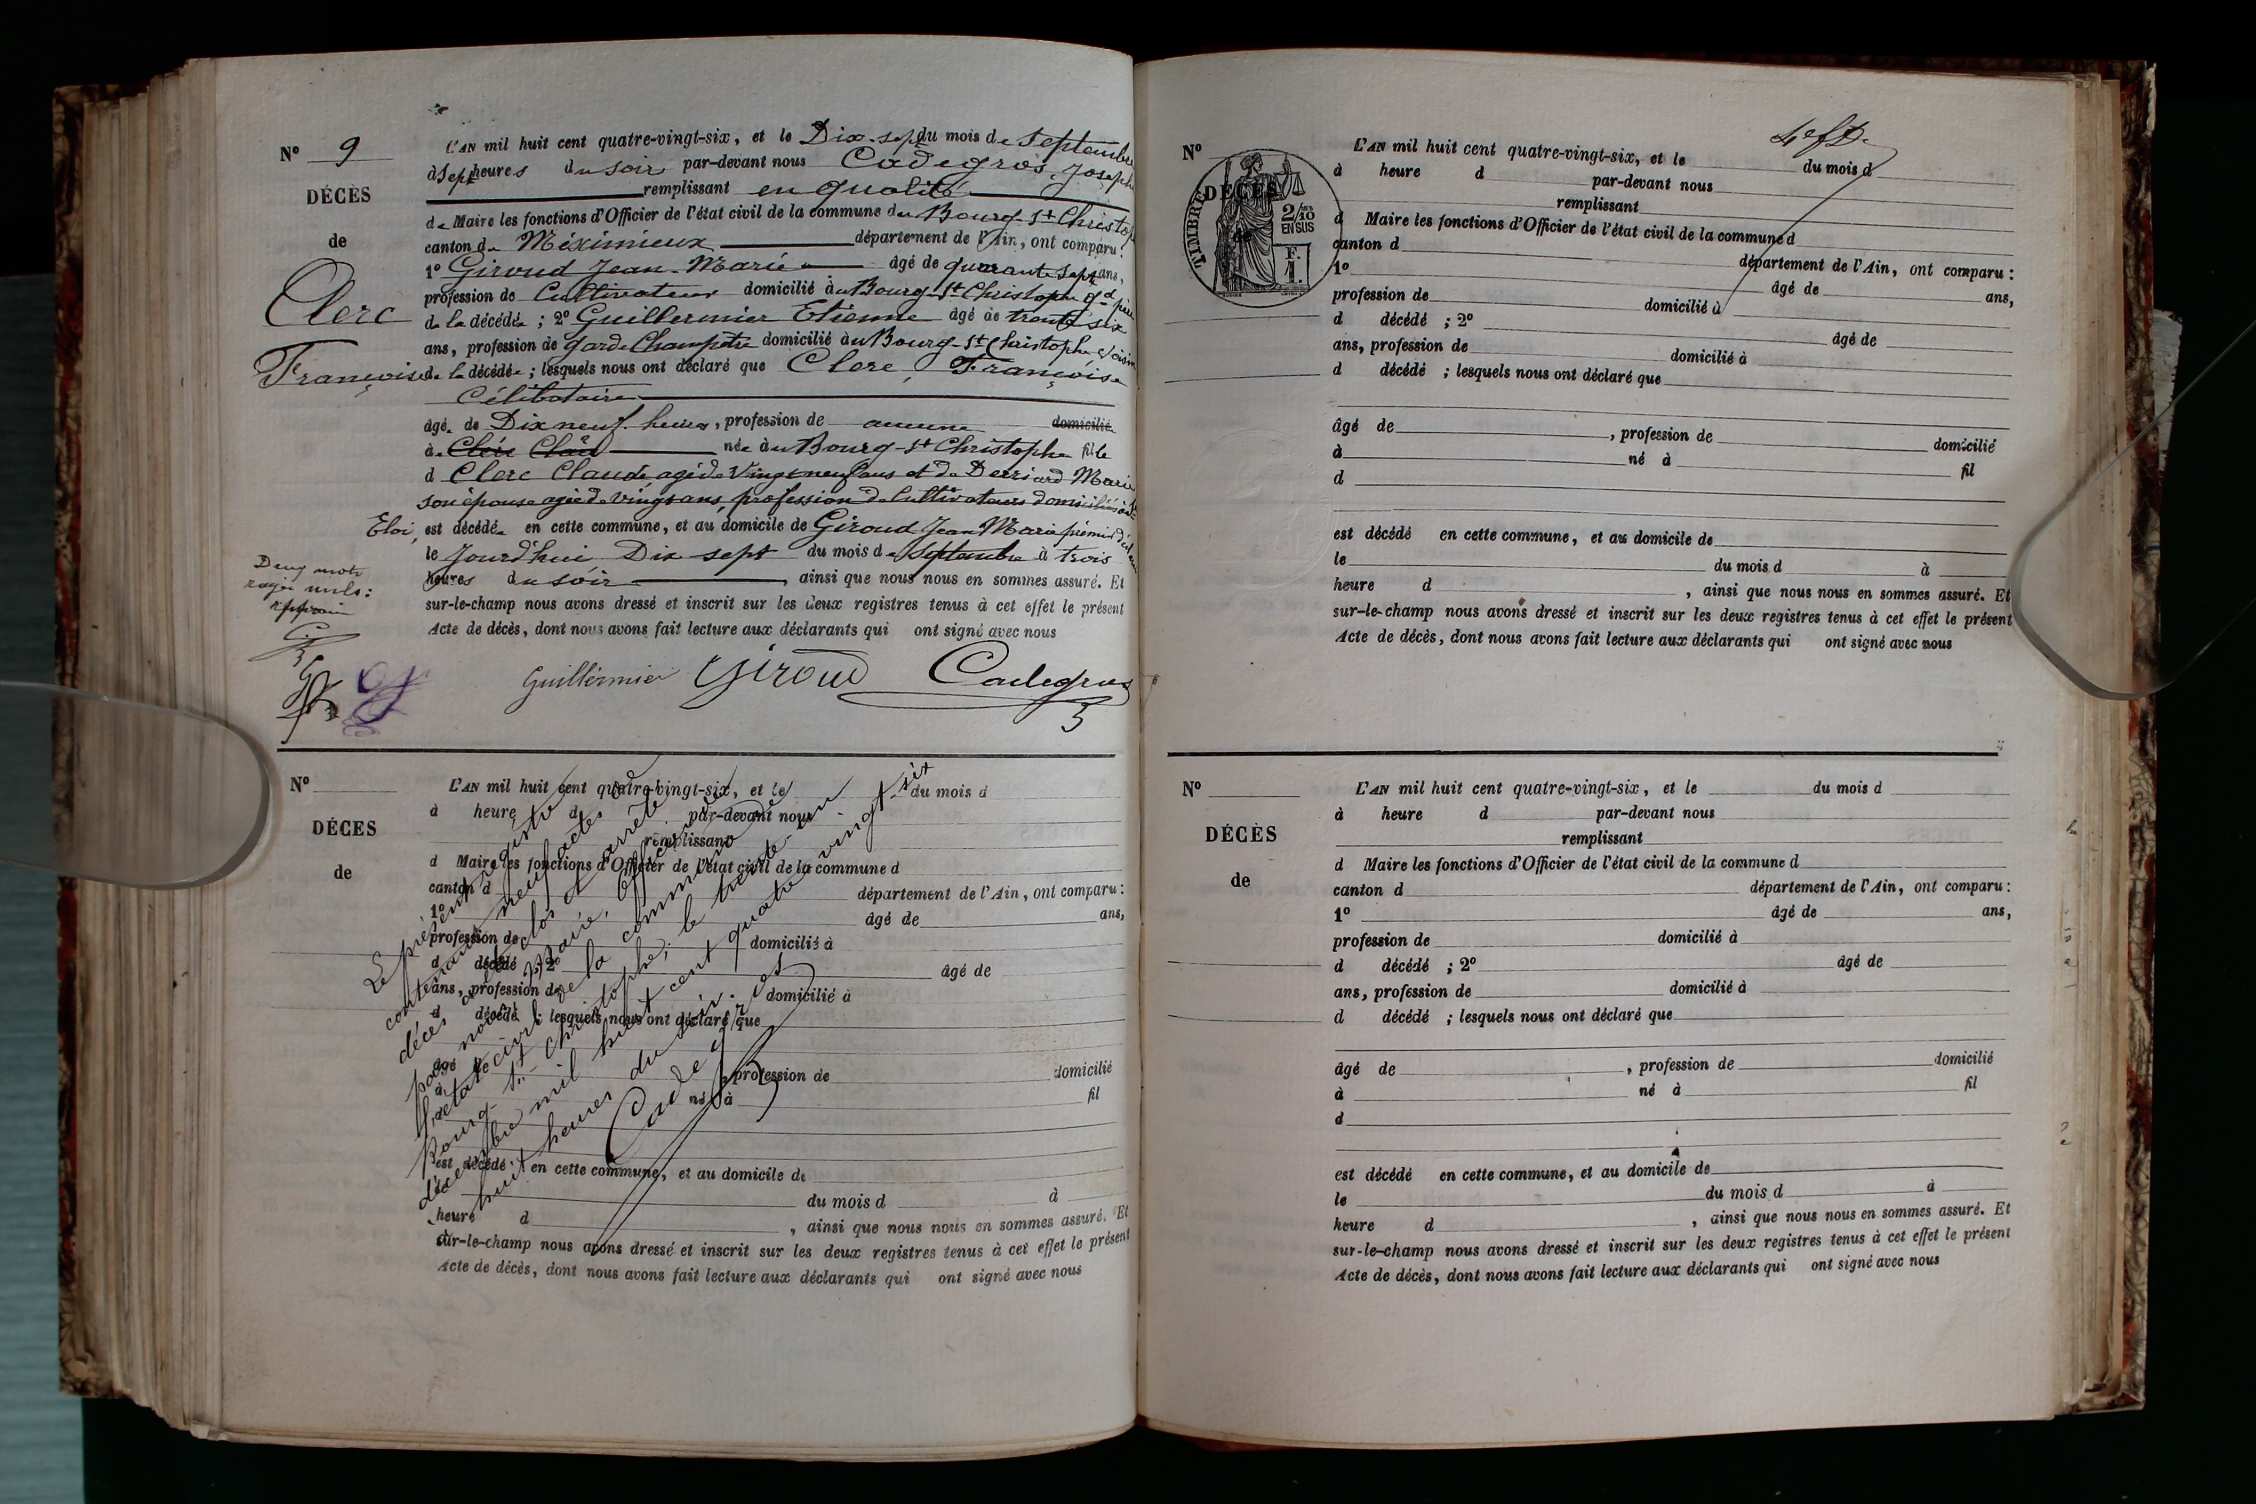 N° 9
DÉCÈS
de
Clerc
Françoise
L'AN mil huit cent quatre-vingt-six, et le Dix-sept du mois de Septembre
à Sept heures du soir par-devant nous Cadegros, Joseph
remplissant en qualité
de Maire les fonctions d'Officier de l'état civil de la commune du Bourg-St Christophe
canton de Méximieux département de l'Ain, ont comparu :
1° Giroud Jean-Marie âgé de quarante sept ans,
profession de Cultivateur domicilié à Bourg-St Christophe gd père
de la décédée ; 2° Guillermier Etienne âgé de trente six
ans, profession de garde Champetre domicilié au Bourg-St Christophe, voisin
de la décédée ; lesquels nous ont déclaré que Clerc, Françoise
Célibataire
âgé de Dix neuf heures, profession de aucune domicilié
à Clerc née au Bourg-St Christophe fille
d Clerc Claude, agé de Vingt neuf ans et de Derriard Marie
son épouse agée de vingt ans, profession de Cultivateurs domiciliés à St
Eloi, est décédée en cette commune, et au domicile de Giroud Jean Marie prémier déclarant
le Jourd'hui Dix sept du mois de Septembre à trois
heures du soir, ainsi que nous nous en sommes assuré. Et
sur-le-champ nous avons dressé et inscrit sur les deux registres tenus à cet effet le présent
Acte de décès, dont nous avons fait lecture aux déclarants qui ont signé avec nous
Deux mots
rayés nuls :
Guillérmier Giroud Cadegros
N°
DÉCES
de
L'AN mil huit cent quatre-vingt-six, et le du mois d
à heure d par-devant nous
remplissant
d Maire les fonctions d'Officier de l'état civil de la commune d
canton d département de l'Ain, ont comparu :
1° âgé de ans,
profession de domicilié à
d décédé ; 2° âgé de
ans, profession de domicilié à
d décédé ; lesquels nous ont déclaré que
âgé de , profession de domicilié
à né à fil
d
est décédé en cette commune, et au domicile de
le du mois d à
heure d , ainsi que nous nous en sommes assuré. Et
sur-le-champ nous avons dressé et inscrit sur les deux registres tenus à cet effet le présent
Acte de décès, dont nous avons fait lecture aux déclarants qui ont signé avec nous
Le présent registre
contenant neuf actes de
décès a été clos et arrêté
par nous Maire, Officier de
l'état civil de la commune de
Bourg-St Christophe, le trente-un
décembre mil huit cent quatre vingt-six
huit heures du soir.
Cadegros
N°
DÉCÈS
de
TIMBRE
2/10
EN SUS
F.
1.
L'AN mil huit cent quatre-vingt-six, et le du mois d
à heure d par-devant nous
remplissant
d Maire les fonctions d'Officier de l'état civil de la commune d
canton d département de l'Ain, ont comparu :
1° âgé de ans,
profession de domicilié à
d décédé ; 2° âgé de
ans, profession de domicilié à
d décédé ; lesquels nous ont déclaré que
âgé de , profession de domicilié
à né à fil
d
est décédé en cette commune, et au domicile de
le du mois d à
heure d , ainsi que nous nous en sommes assuré. Et
sur-le-champ nous avons dressé et inscrit sur les deux registres tenus à cet effet le présent
Acte de décès, dont nous avons fait lecture aux déclarants qui ont signé avec nous
N°
DÉCÈS
de
L'AN mil huit cent quatre-vingt-six, et le du mois d
à heure d par-devant nous
remplissant
d Maire les fonctions d'Officier de l'état civil de la commune d
canton d département de l'Ain, ont comparu :
1° âgé de ans,
profession de domicilié à
d décédé ; 2° âgé de
ans, profession de domicilié à
d décédé ; lesquels nous ont déclaré que
âgé de , profession de domicilié
à né à fil
d
est décédé en cette commune, et au domicile de
le du mois d à
heure d , ainsi que nous nous en sommes assuré. Et
sur-le-champ nous avons dressé et inscrit sur les deux registres tenus à cet effet le présent
Acte de décès, dont nous avons fait lecture aux déclarants qui ont signé avec nous